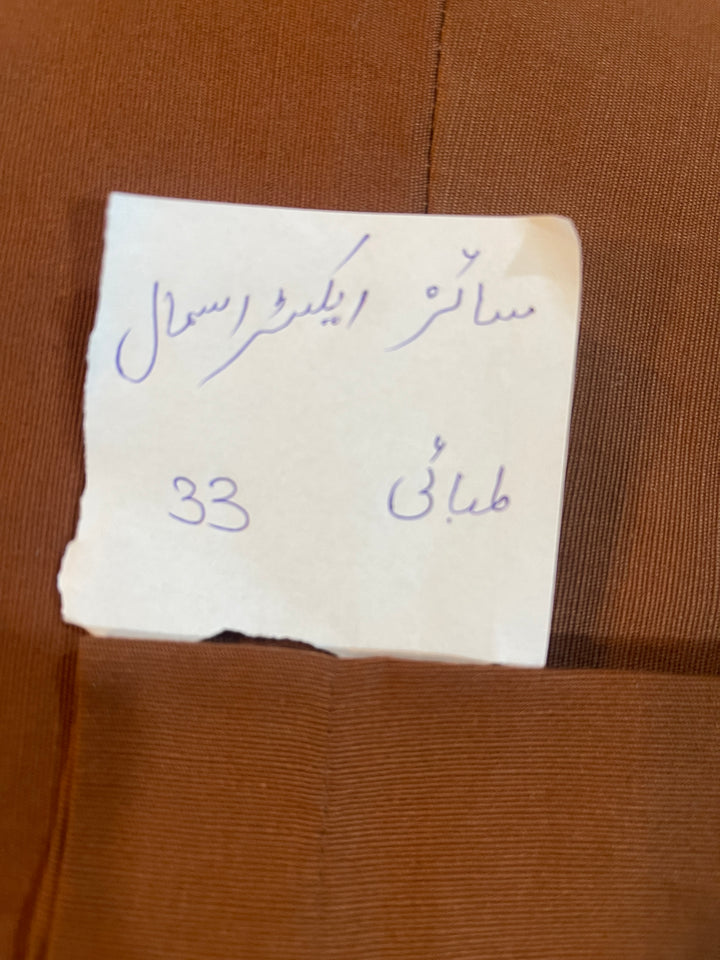 سائز ایکسٹر اسمال
لمبائی 33